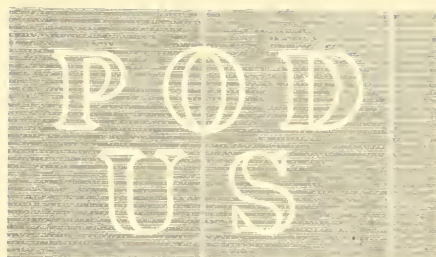 POD
US